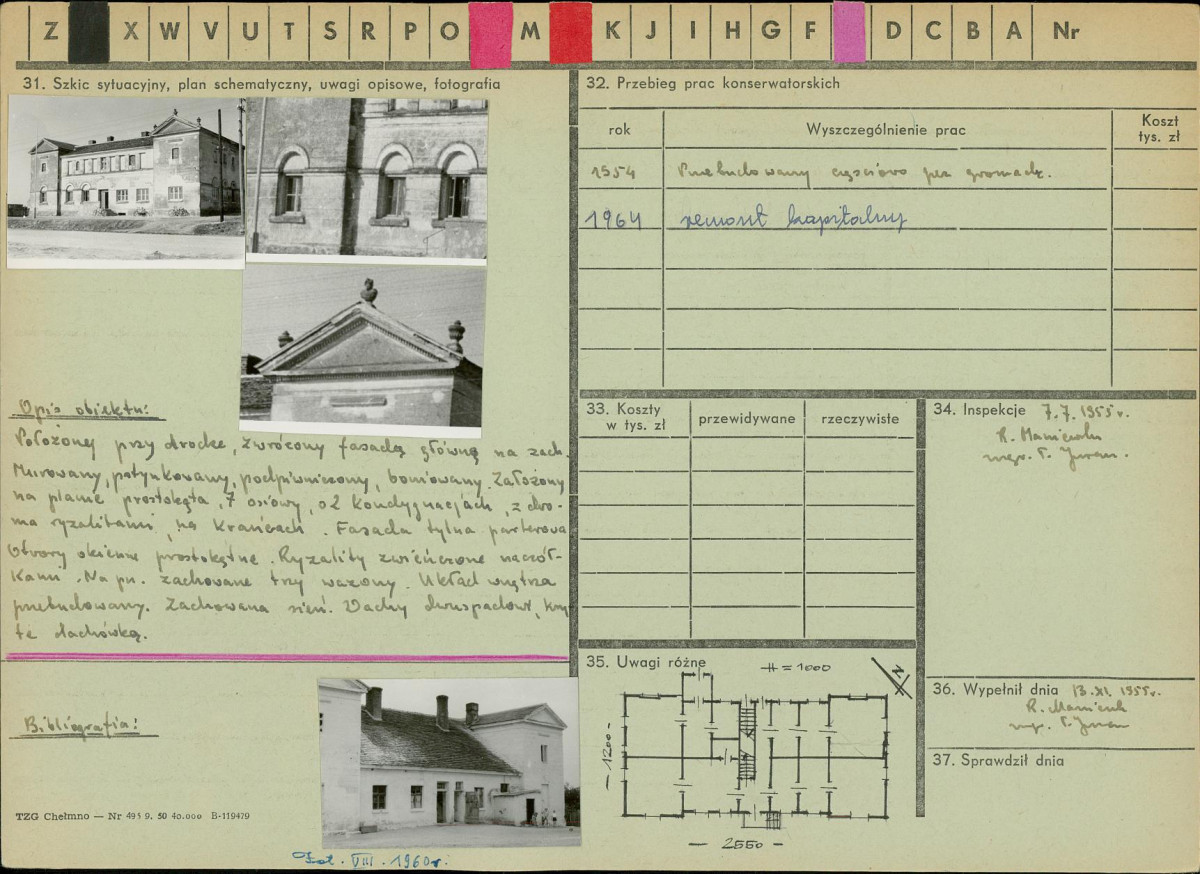 Z X W V U T S R P O M K J I H G F D C B A Nr
31. Szkic sytuacyjny, plan schematyczny, uwagi opisowe, fotografia
Opis obiektu:
Położony przy drodze, zwrócony fasadą główną na zach.
Murowany, potynkowany, podpiwniczony, boniowany. Założony
na planie prostokąta, 7 osiowy, o 2 kondygnacjach, z dwo-
ma ryzalitami na krańcach. Fasada tylna parterowa
Otwory okienne prostokątne. Ryzality zwieńczone naczół-
kami. Na pn. zachowane trzy wazony. Układ wnętrza
przebudowany. Zachowana sień. Dachy dwuspadowe, kry
te dachówką.
Bibliografia:
TZG Chełmno — Nr 495 9. 50 40.000 B-119479
Fot. VIII. 1960r.
32. Przebieg prac konserwatorskich
rok Wyszczególnienie prac Koszt
tys. zł
1954 Przebudowany częściowo prz gromadz.
1964 remont kapitalny
33. Koszty
w tys. zł przewidywane rzeczywiste
34. Inspekcje 7.7.1955r.
mgr. T.
35. Uwagi różne
# = 1000
N
1200
2550
36. Wypełnił dnia 13.XI.1955r.
mgr. T.
37. Sprawdził dnia